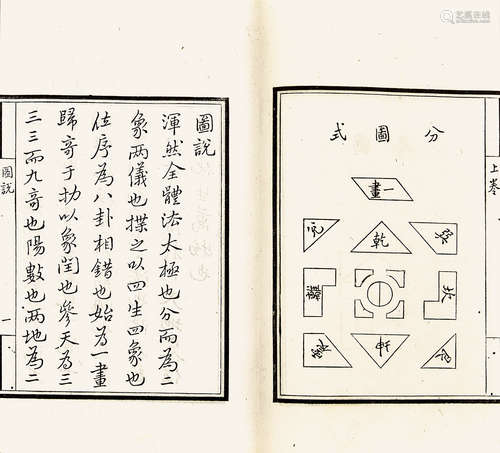 上卷
分圖式
一畫
兌
乾
坎
離
坤
艮
圖說
渾然全體法太極也分而為二
象两儀也揲之以四生四象也
位序為八卦相錯也始為一畫
歸奇于扐以象閏也參天為三
三三而九奇也陽數也两地為二
圖說
一